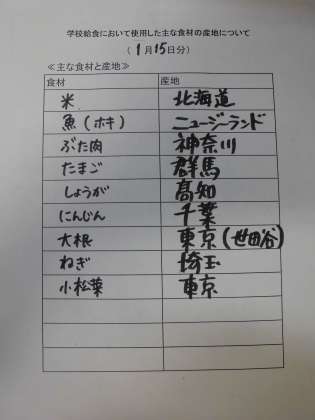 学校給食において使用した主な食材の産地について
(1月15日分)
≪主な食材と産地≫
食材 産地
米 北海道
魚(ホキ) ニュージーランド
ぶた肉 神奈川
たまご 群馬
しょうが 高知
にんじん 千葉
大根 東京(世田谷)
ねぎ 埼玉
小松菜 東京